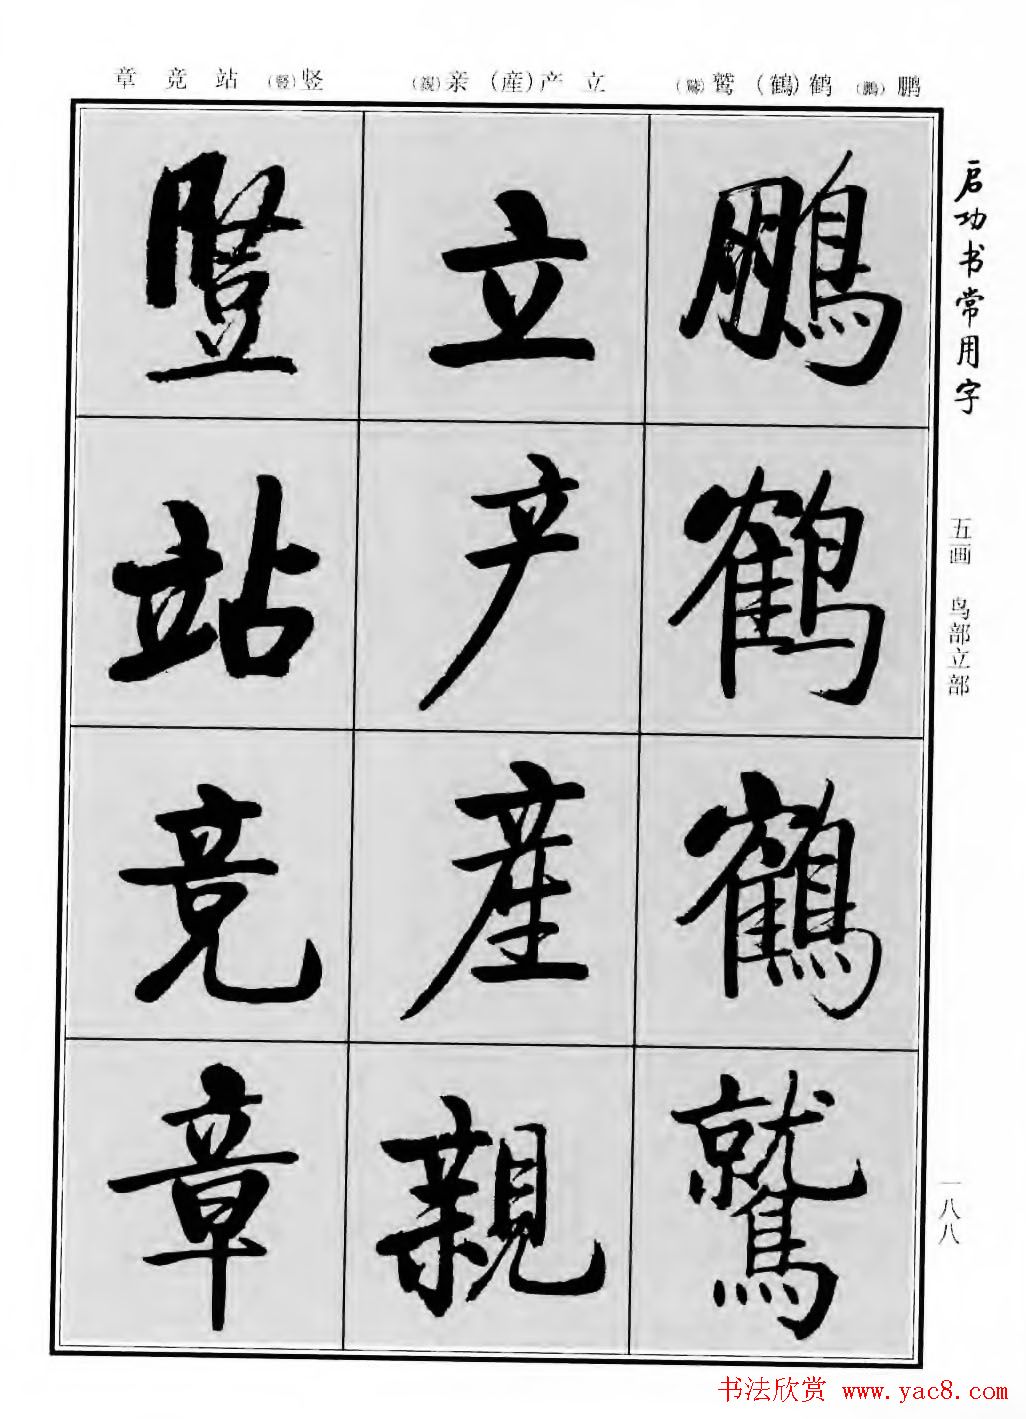 鹏(鵬) 鹤(鶴) 鹫(鷲)
立 产(産) 亲(親)
竖(豎) 站 竞 章
启功书常用字
五画 鸟部立部
一八八
鵬
鹤
鶴
鷲
立
产
産
親
豎
站
竞
章
书法欣赏 www.yac8.com